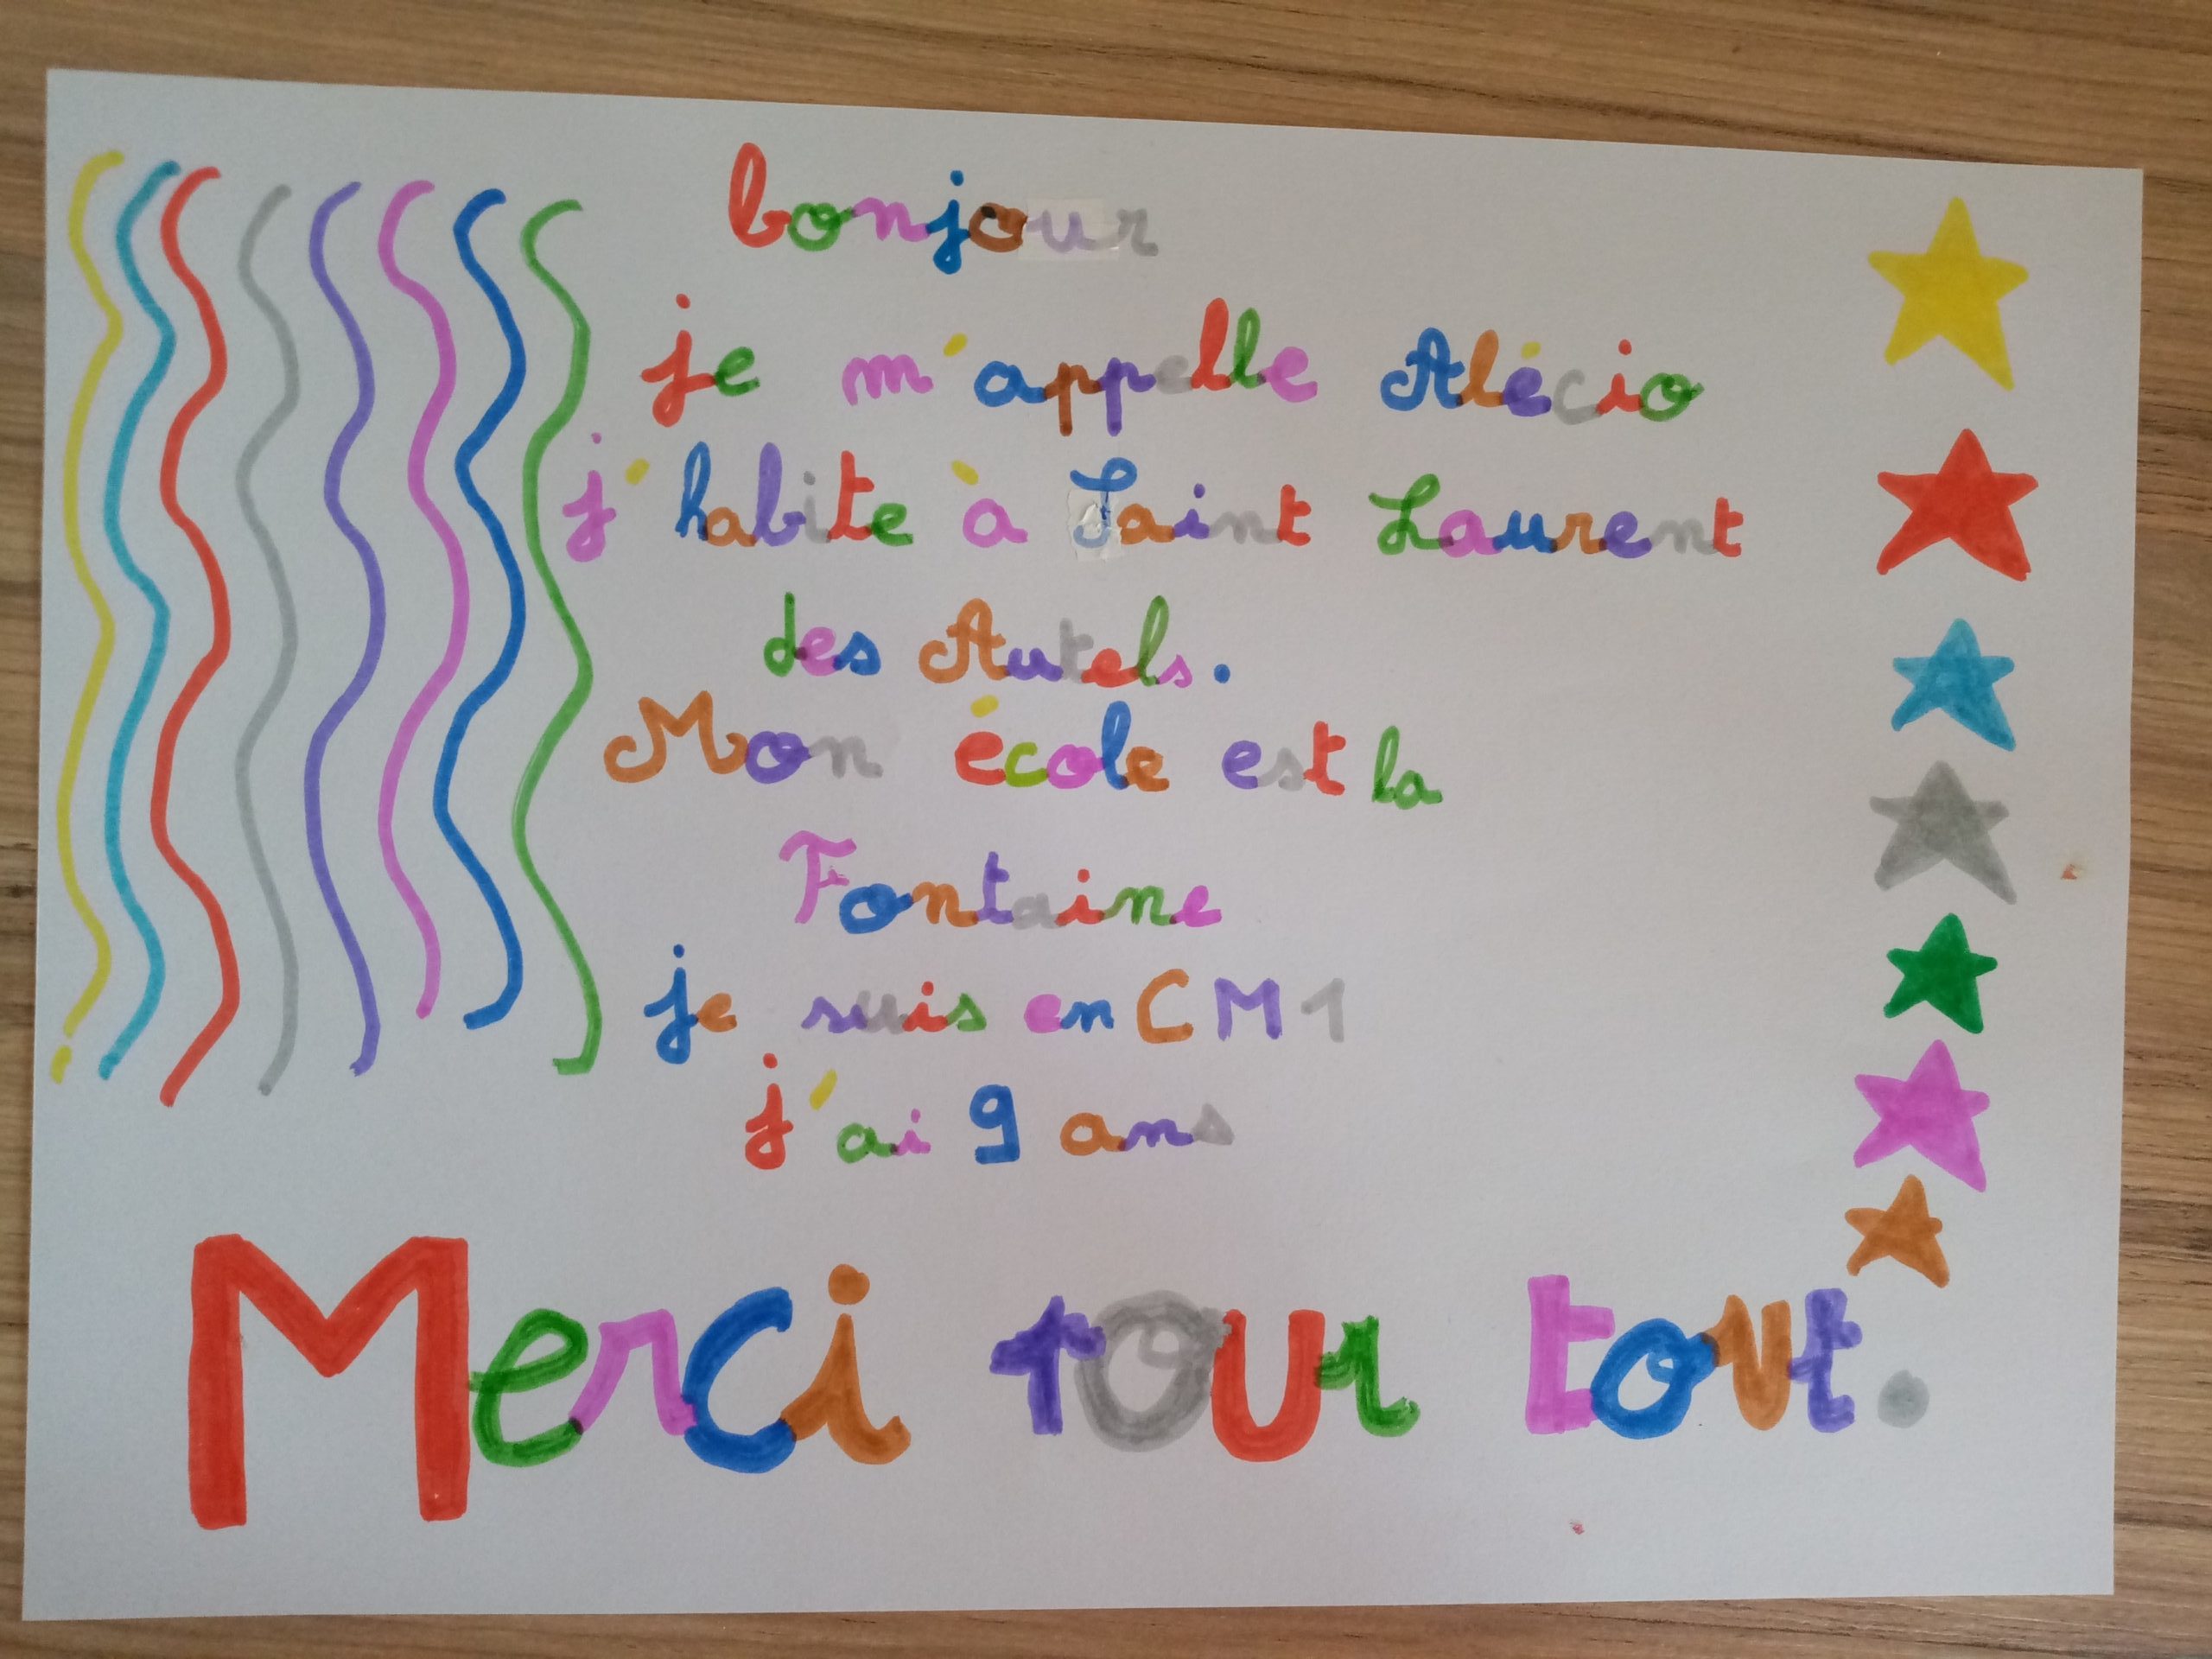 bonjour
je m'appelle Alécio
j'habite à Saint Laurent
des Autels.
Mon école est la
Fontaine
je suis en CM1
j'ai 9 ans
Merci pour tout.